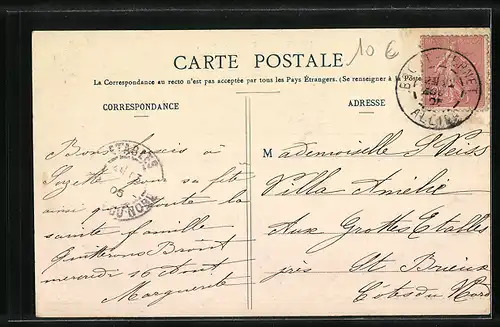 10 €
CARTE POSTALE
La Correspondance au recto n'est pas acceptée par tous les Pays Étrangers. (Se renseigner à la Poste
CORRESPONDANCE
ADRESSE
Bons baisers à
pour sa fête
ainsi qu'à toute la
sainte famille
Quitterons
mercredi 16 Aout
Marguerite
ETABLES
05
CÔTES-DU-NORD
ALLIER
Mademoiselle S Weiss
Villa Amélie
Aux Grottes Etables
près St Brieux
Côtes du Nord